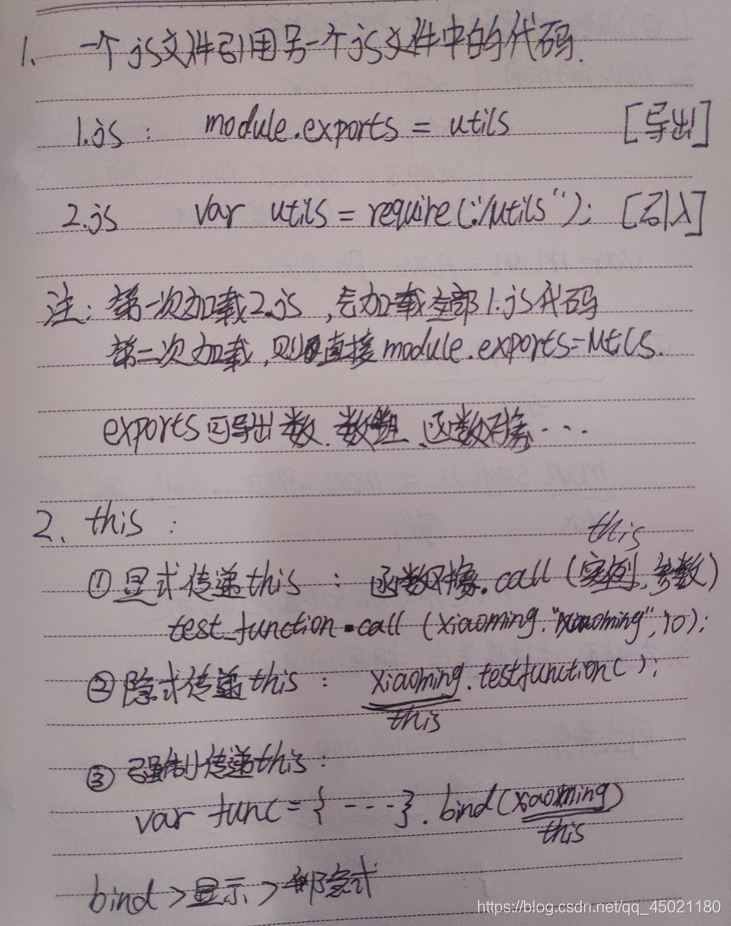 1、一个js文件引用另一个js文件中的代码.
1.js : module.exports = utils [导出]
2.js var utils = require("./utils"); [引入]
注: 第一次加载2.js , 会加载全部1.js代码
第二次加载,则直接module.exports=utils.
exports可导出数、数组、函数对象...
2、this :
this
①显式传递this : 函数对象.call (实例,参数)
test_function.call (xiaoming,"xiaoming",10);
②隐式传递this : xiaoming.testfunction( );
this
③强制传递this :
var func = { --- }. bind(xiaoming)
this
bind > 显示 > 隐式
https://blog.csdn.net/qq_45021180